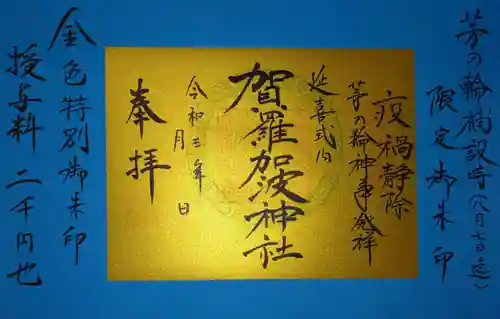 茅の輪構設時(八月七日迄)
限定御朱印
疫禍静除
茅の輪神事発祥
延喜式内
賀羅加波神社
令和三年
月 日
奉拝
金色特別御朱印
授与料 二千円也